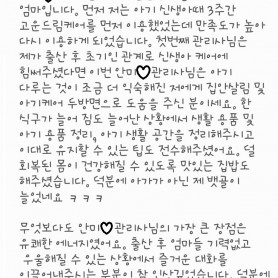 엄마입니다. 먼저 저는 아기 신생아때 3주간
고운드림케어를 먼저 이용했었는데 만족도가 높아
다시 이용하게 되었습니다. 첫번째 관리사님은
제가 출산 후 초기인 관계로 신생아 케어에
힘써주셨다면 이번 안미♥관리사님은 아기
다루는 것이 조금 더 익숙해진 저에게 집안살림 및
아기케어 두방면으로 도움을 주신 분이세요. 한
식구가 늘어 짐도 늘어난 상황에서 생활 용품 및
아기 용품 정리, 아기 생활 공간을 정리해주시고
이대로 유지할 수 있는 팁도 전수해주셨어요. 덜
회복된 몸이 건강해질 수 있도록 맛있는 집밥도
해주셨습니다. 덕분에 아가가 아닌 제 뱃골이
늘었네요 ㅋㅋㅋ
무엇보다도 안미♥관리사님의 가장 큰 장점은
유쾌한 에너지였어요. 출산 후 엄마들 기력없고
우울해질 수 있는 상황에서 즐거운 대화를
이끌어내주시는 부분이 참 인상깊었습니다. 덕분에